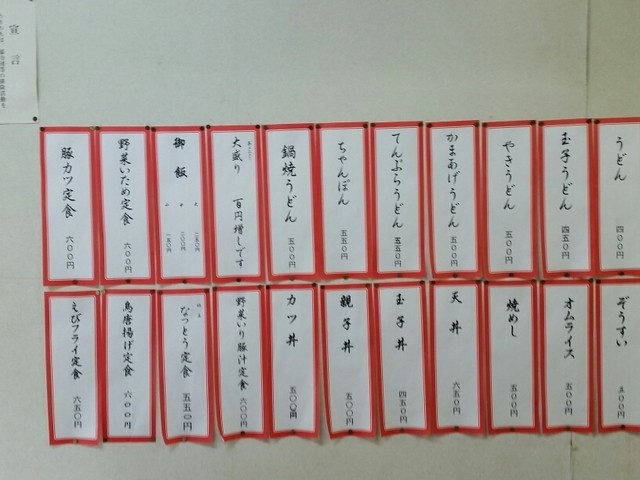 うどん 四〇〇円
玉子うどん 四五〇円
やきうどん 五〇〇円
かまあげうどん 五〇〇円
てんぷらうどん 五五〇円
ちゃんぽん 五五〇円
鍋焼うどん 五〇〇円
大盛り 百円増しです
御飯
大 二五〇円
中 二〇〇円
小 一五〇円
野菜いため定食 六〇〇円
豚カツ定食 六〇〇円
ぞうすい 五〇〇円
オムライス 五〇〇円
焼めし 五〇〇円
天丼 六五〇円
玉子丼 四五〇円
親子丼 五〇〇円
カツ丼 五〇〇円
野菜いり豚汁定食 六〇〇円
なっとう定食 五五〇円
鳥唐揚げ定食 六〇〇円
えびフライ定食 六五〇円
宣言